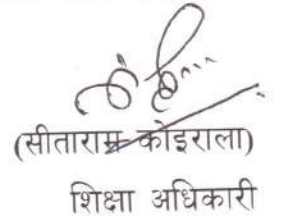 (सीताराम कोइराला)
शिक्षा अधिकारी